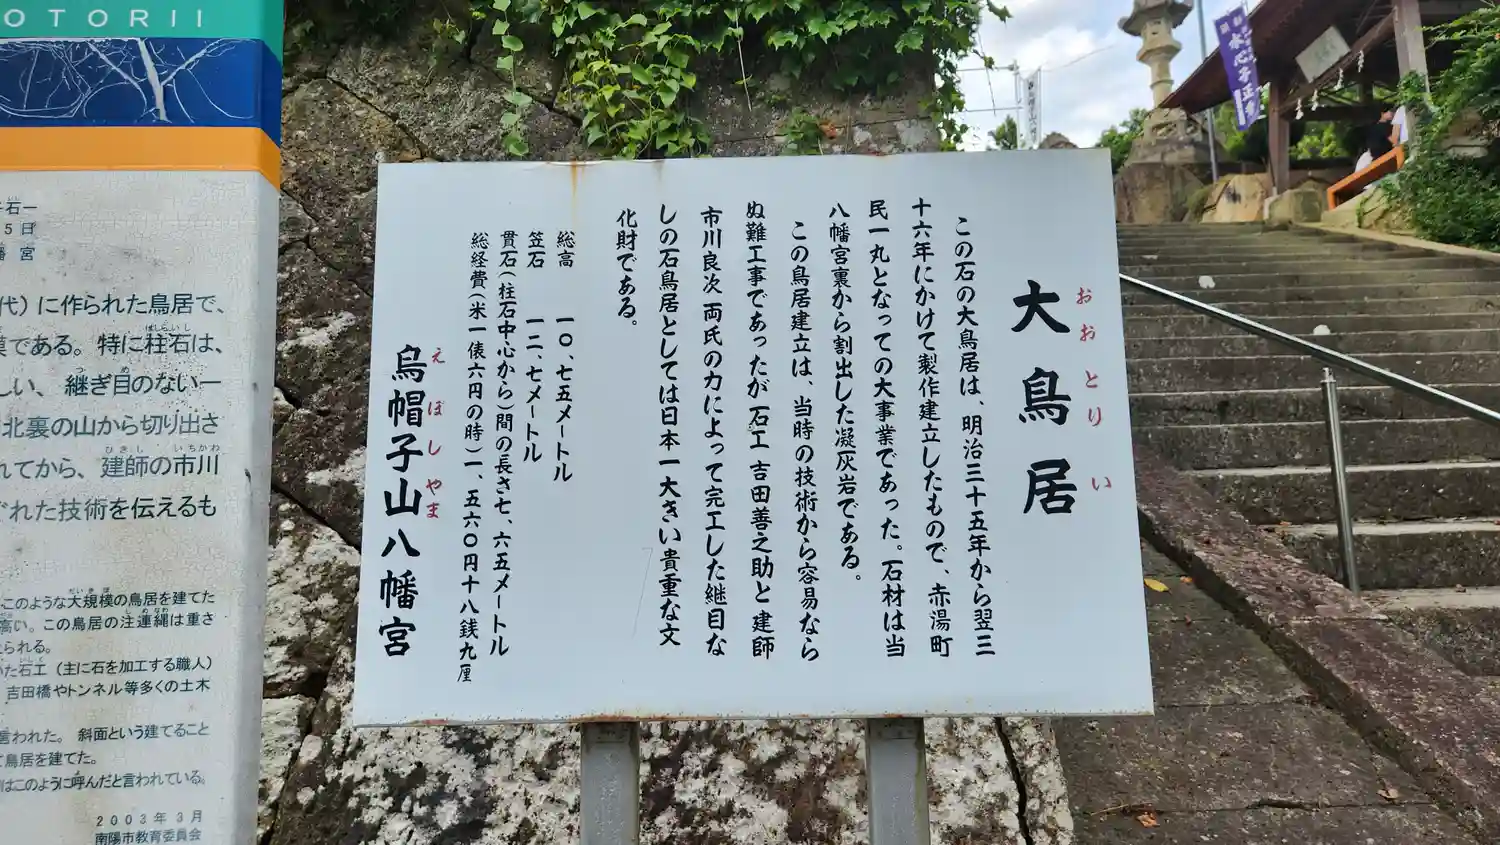 大鳥居
おおとりい
この石の大鳥居は、明治三十五年から翌三
十六年にかけて製作建立したもので、赤湯町
民一丸となっての大事業であった。石材は当
八幡宮裏から割出した凝灰岩である。
この鳥居建立は、当時の技術から容易なら
ぬ難工事であったが石工 吉田善之助と建師
市川良次 両氏の力によって完工した継目な
しの石鳥居としては日本一大きい貴重な文
化財である。
総高 一〇、七五メートル
笠石 一二、七メートル
貫石(柱石中心から)間の長さ七、六五メートル
総経費(米一俵六円の時)一、五六〇円十八銭九厘
烏帽子山八幡宮
えぼしやま
OTORII
石一
5日
幡宮
代）に作られた鳥居で、
模である。特に柱石は、
はしらいし
しい、継ぎ目のない一
つ め
北裏の山から切り出さ
れてから、建師の市川
いちかわ
ぐれた技術を伝えるも
このような大規模の鳥居を建てた
高い。この鳥居の注連縄は重さ
しめなわ
られる。
いた石工（主に石を加工する職人）
吉田橋やトンネル等多くの土木
言われた。斜面という建てること
て鳥居を建てた。
はこのように呼んだと言われている。
2003年3月
南陽市教育委員会